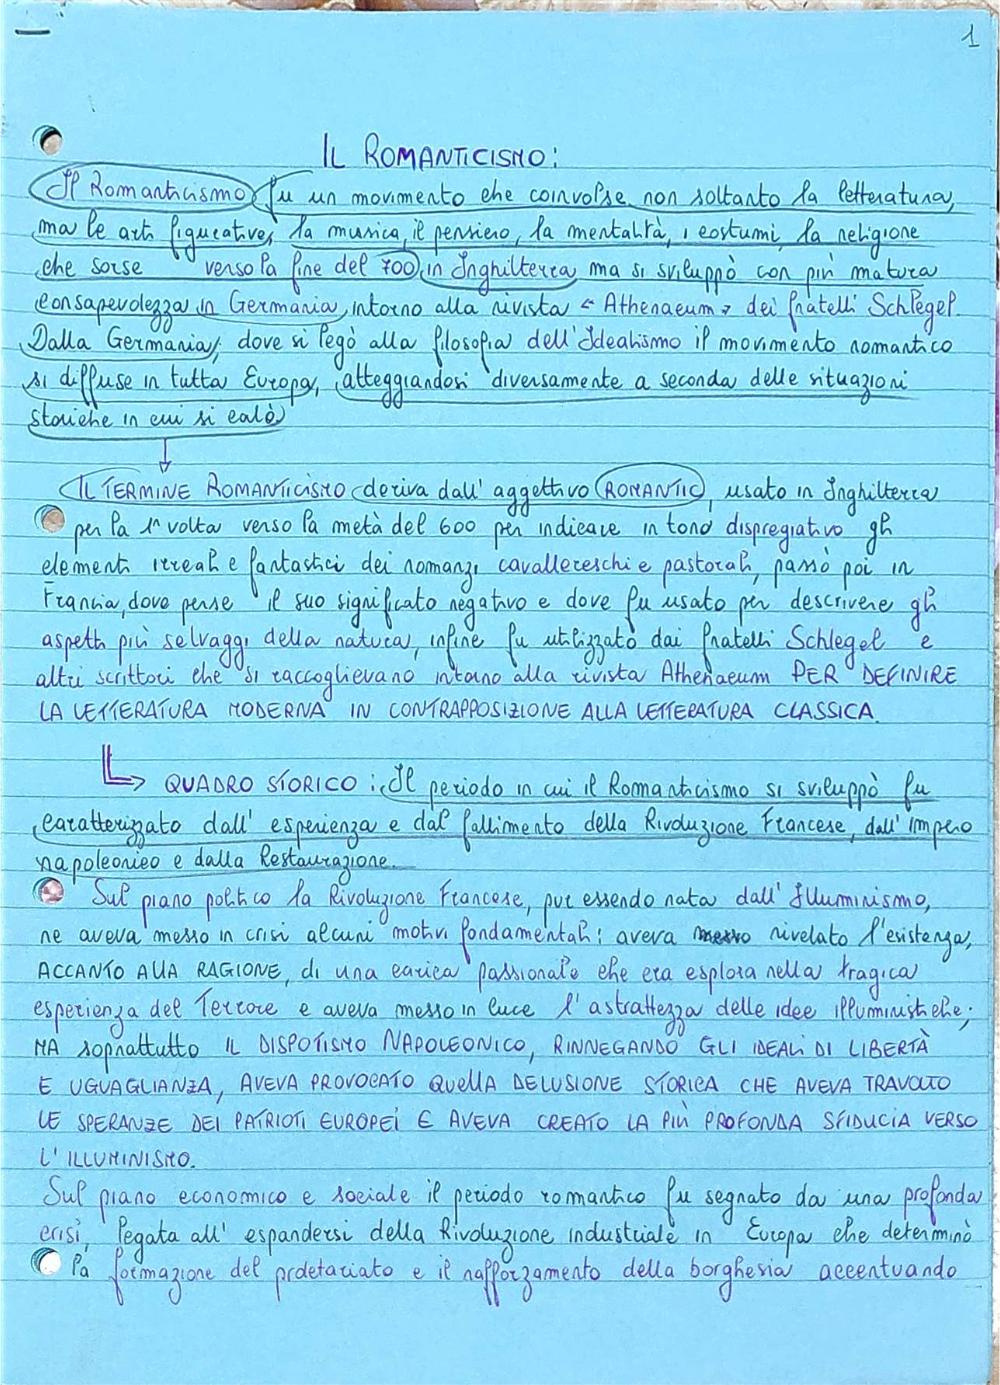 1
IL ROMANTICISMO:
Il Romanticismo fu un movimento che coinvolse non soltanto la letteratura,
ma le arti figurative, la musica, il pensiero, la mentalità, i costumi, la religione
che sorse verso la fine del 700 in Inghilterra ma si sviluppò con più matura
consapevolezza in Germania, intorno alla rivista « Athenaeum » dei fratelli Schlegel.
Dalla Germania, dove si legò alla filosofia dell'Idealismo il movimento romantico
si diffuse in tutta Europa, atteggiandosi diversamente a seconda delle situazioni
storiche in cui si calò
IL TERMINE ROMANTICISMO deriva dall'aggettivo ROMANTIC, usato in Inghilterra
per la 1ª volta verso la metà del 600 per indicare in tono dispregiativo gli
elementi irreali e fantastici dei romanzi cavallereschi e pastorali, passò poi in
Francia, dove perse il suo significato negativo e dove fu usato per descrivere gli
aspetti più selvaggi della natura, infine fu utilizzato dai fratelli Schlegel e
altri scrittori che si raccoglievano intorno alla rivista Athenaeum PER DEFINIRE
LA LETTERATURA MODERNA IN CONTRAPPOSIZIONE ALLA LETTERATURA CLASSICA.
QUADRO STORICO: Il periodo in cui il Romanticismo si sviluppò fu
caratterizzato dall'esperienza e dal fallimento della Rivoluzione Francese, dall'impero
napoleonico e dalla Restaurazione.
Sul piano politico la Rivoluzione Francese, pur essendo nata dall'Illuminismo,
ne aveva messo in crisi alcuni motivi fondamentali: aveva rivelato l'esistenza,
ACCANTO ALLA RAGIONE, di una carica passionale che era esplosa nella tragica
esperienza del Terrore e aveva messo in luce l'astrattezza delle idee illuministiche;
MA soprattutto IL DISPOTISMO NAPOLEONICO, RINNEGANDO GLI IDEALI DI LIBERTÀ
E UGUAGLIANZA, AVEVA PROVOCATO QUELLA DELUSIONE STORICA CHE AVEVA TRAVOLTO
LE SPERANZE DEI PATRIOTI EUROPEI E AVEVA CREATO LA PIÙ PROFONDA SFIDUCIA VERSO
L'ILLUMINISMO.
Sul piano economico e sociale il periodo romantico fu segnato da una profonda
crisi, legata all'espandersi della Rivoluzione industriale in Europa che determinò
la formazione del proletariato e il rafforzamento della borghesia accentuando